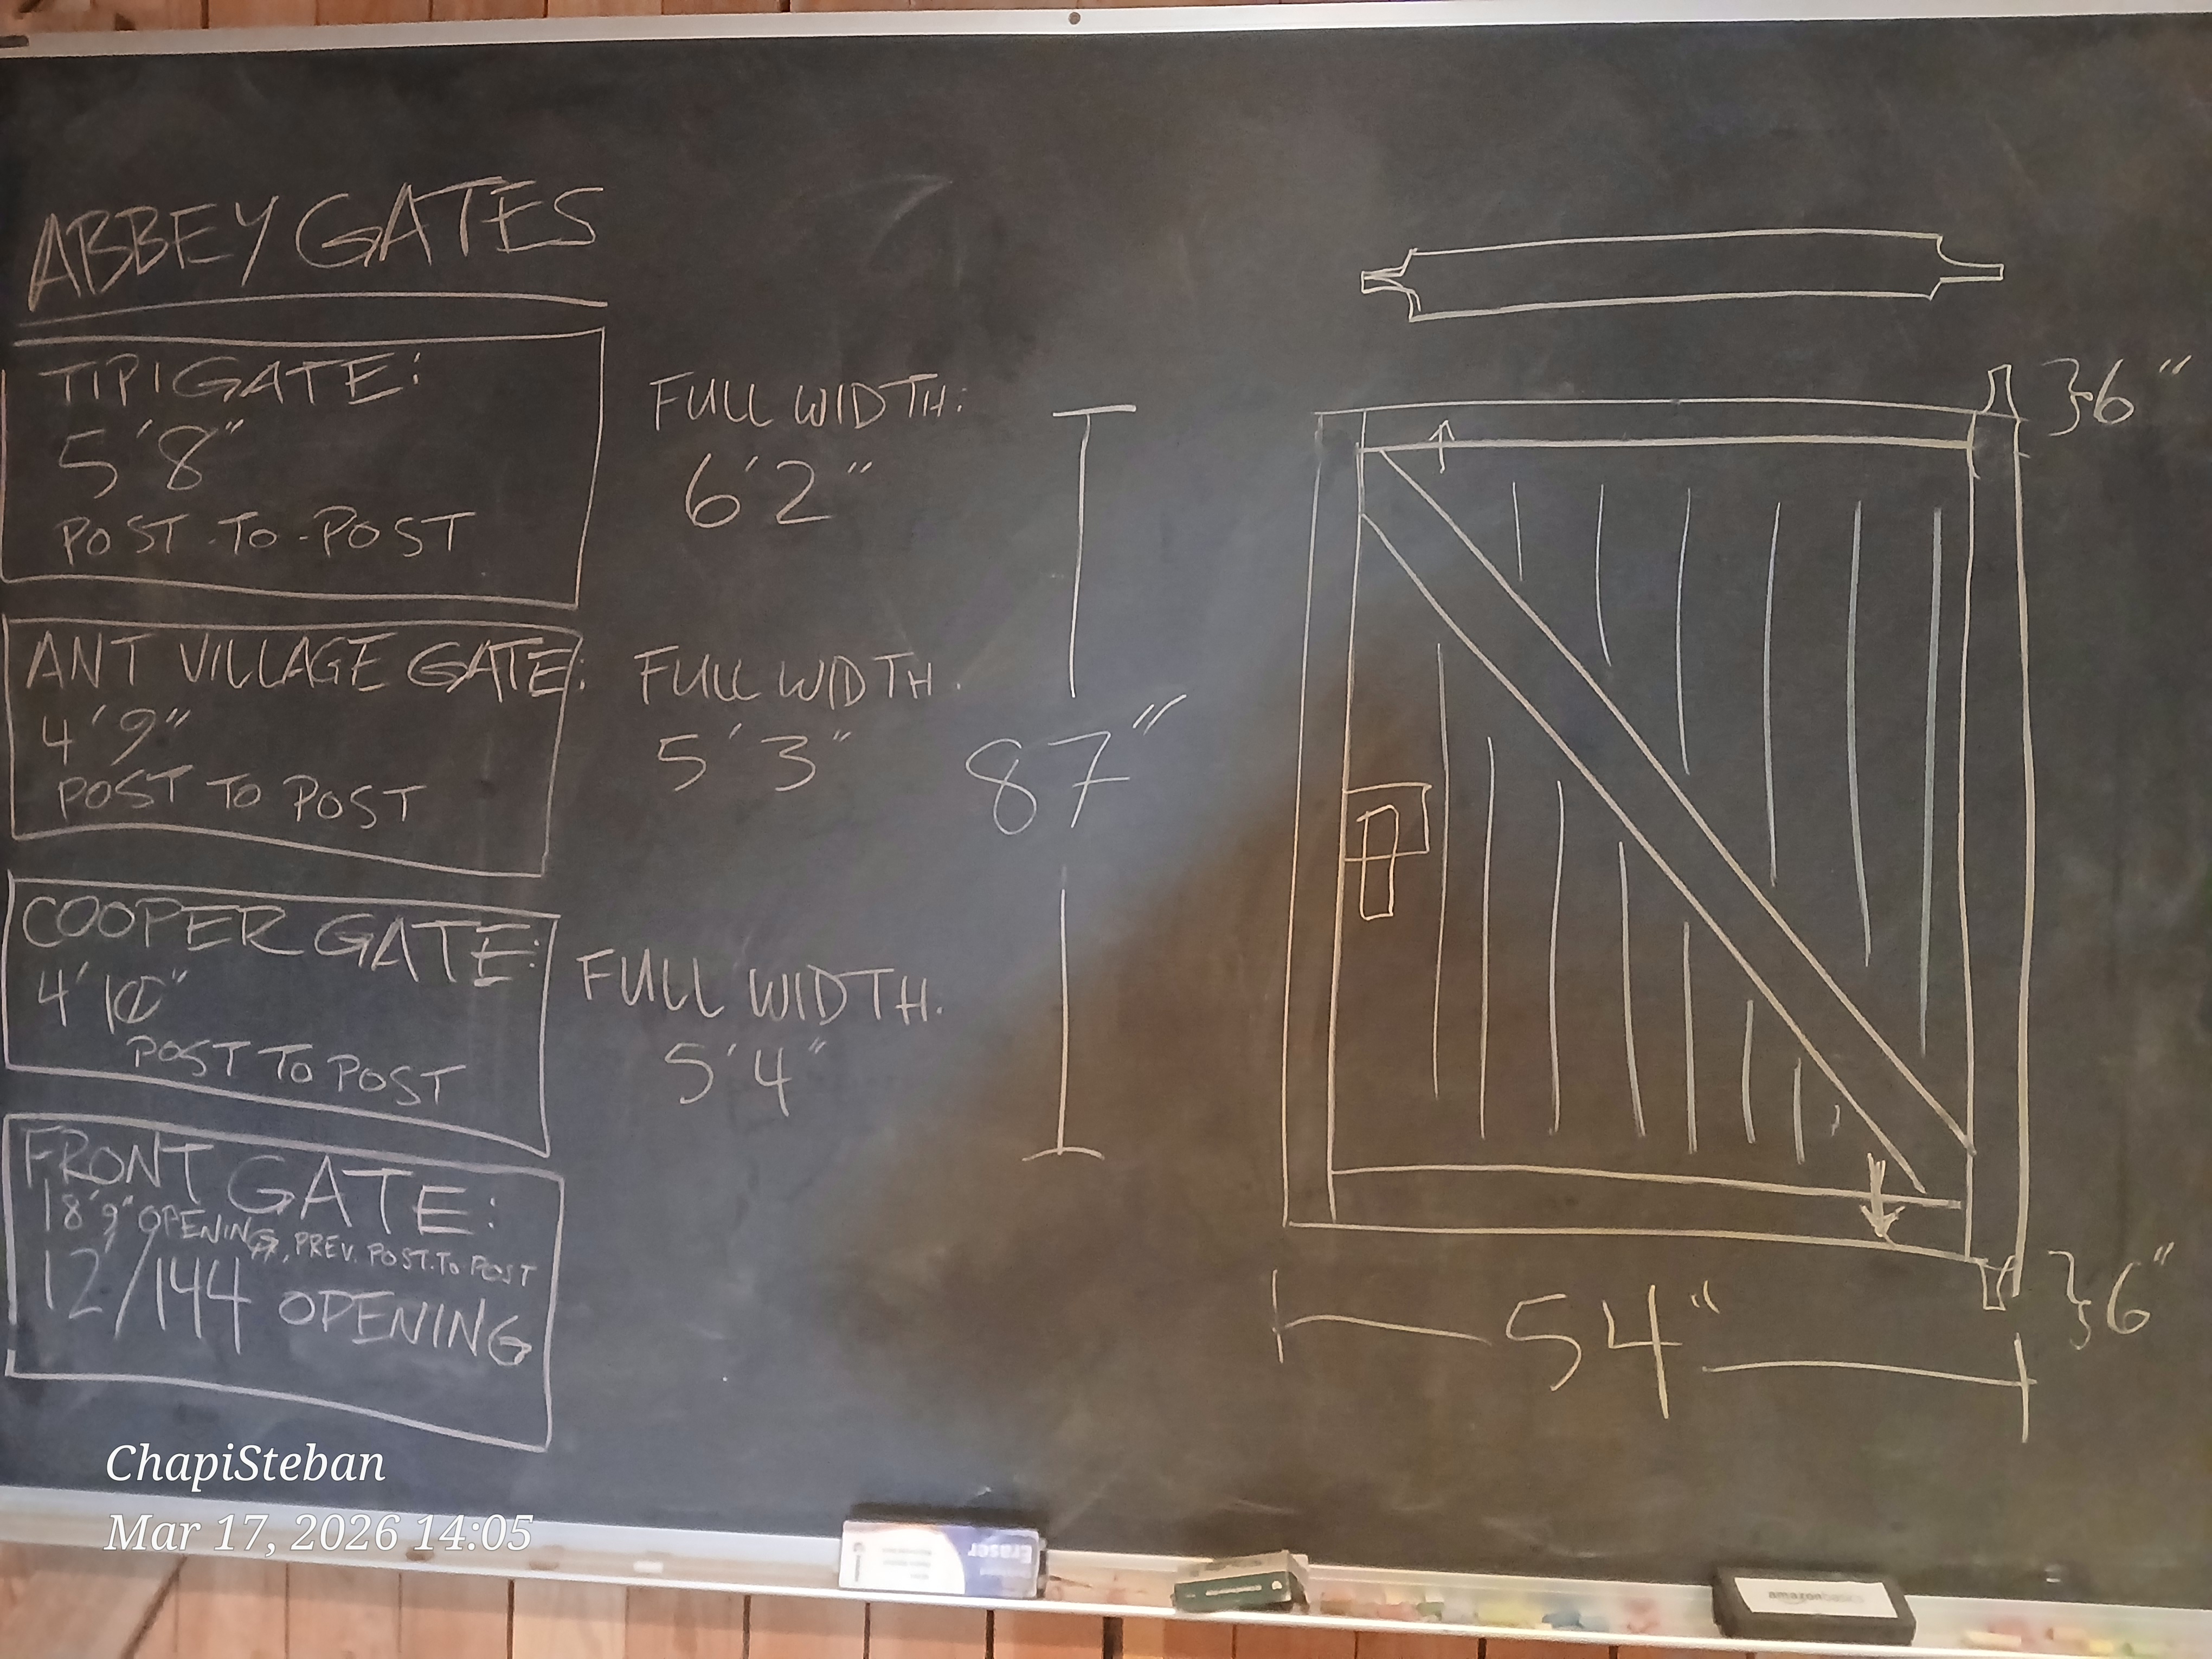 ABBEY GATES
TIPI GATE:
5'8"
POST-TO-POST
FULL WIDTH:
6'2"
ANT VILLAGE GATE:
4'9"
POST TO POST
FULL WIDTH.
5'3"
COOPER GATE:
4'10"
POST TO POST
FULL WIDTH.
5'4"
FRONT GATE:
18'9" OPENING, PREV. POST-TO POST
12'/144 OPENING
87"
}6"
}6"
54"
ChapiSteban
Mar 17, 2026 14:05
Eraser
amazonbasics